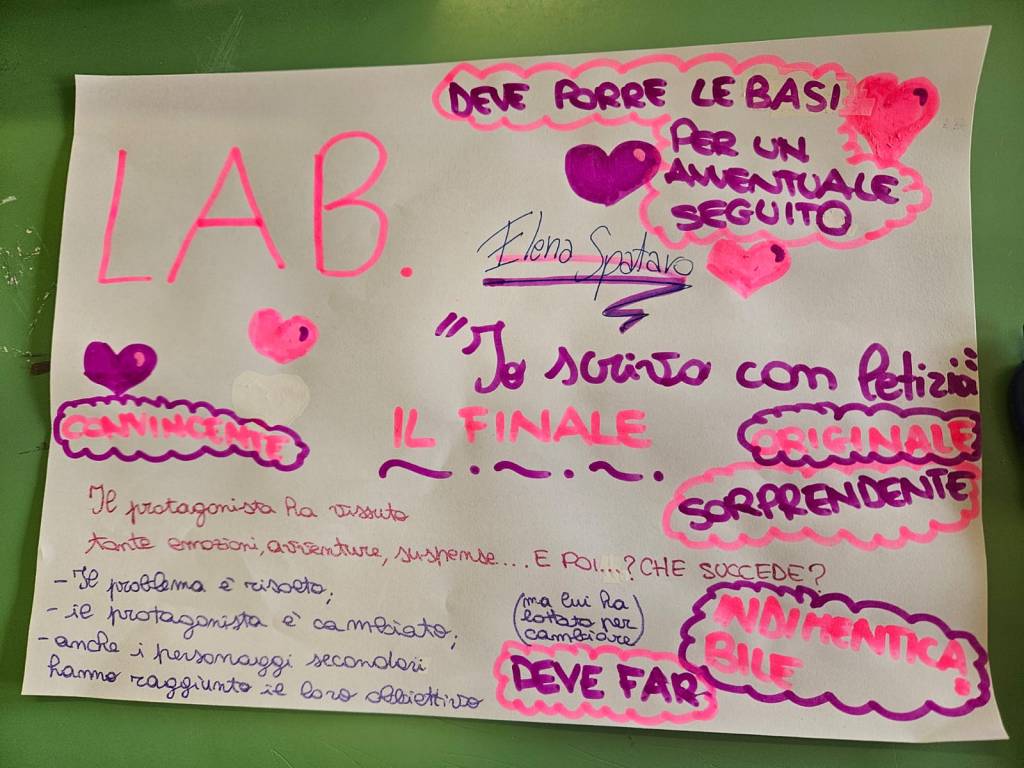 DEVE PORRE LE BASI
PER UN
AVVENTUALE
SEGUITO
LAB.
Elena Spataro
"Io scrivo con letizia"
CONVINCENTE
IL FINALE
ORIGINALE
SORPRENDENTE
Il protagonista ha vissuto
tante emozioni, avventure, suspense.... E POI...? CHE SUCCEDE?
- Il problema è risolto;
- il protagonista è cambiato;
(ma lui ha
lottato per
cambiare)
- anche i personaggi secondari
hanno raggiunto il loro obbiettivo
DEVE FAR
INDIMENTICA
BILE